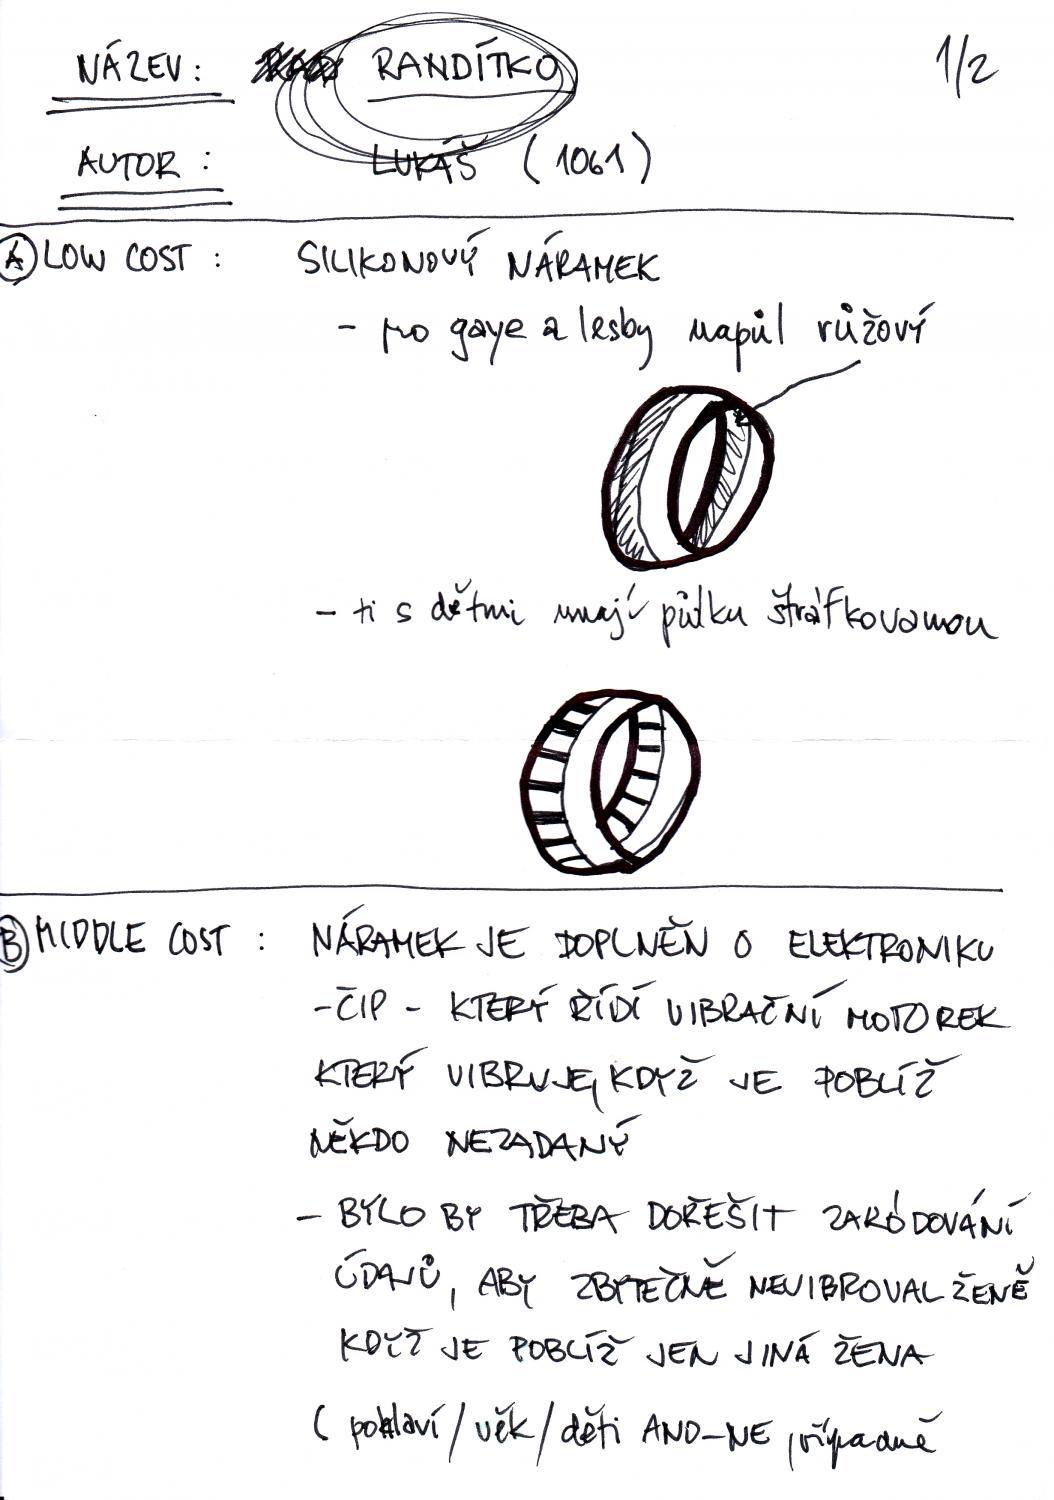 NÁZEV: RANDÍTKO 1/2
AUTOR: LUKÁŠ (1061)
A LOW COST: SILIKONOVÝ NÁRAMEK
- pro gaye a lesby napůl růžový
- ti s dětmi mají půlku štráfkovanou
B MIDDLE COST: NÁRAMEK JE DOPLNĚN O ELEKTRONIKU
- ČIP - KTERÝ ŘÍDÍ VIBRAČNÍ MOTOREK
KTERÝ VIBRUJE, KDYŽ JE POBLÍŽ
NĚKDO NEZADANÝ
- BYLO BY TŘEBA DOŘEŠIT ZAKÓDOVÁNÍ
ÚDAJŮ, ABY ZBYTEČNĚ NEVIBROVAL ŽENĚ
KDYŽ JE POBLÍŽ JEN JINÁ ŽENA
( pohlaví / věk / děti ANO-NE, případně